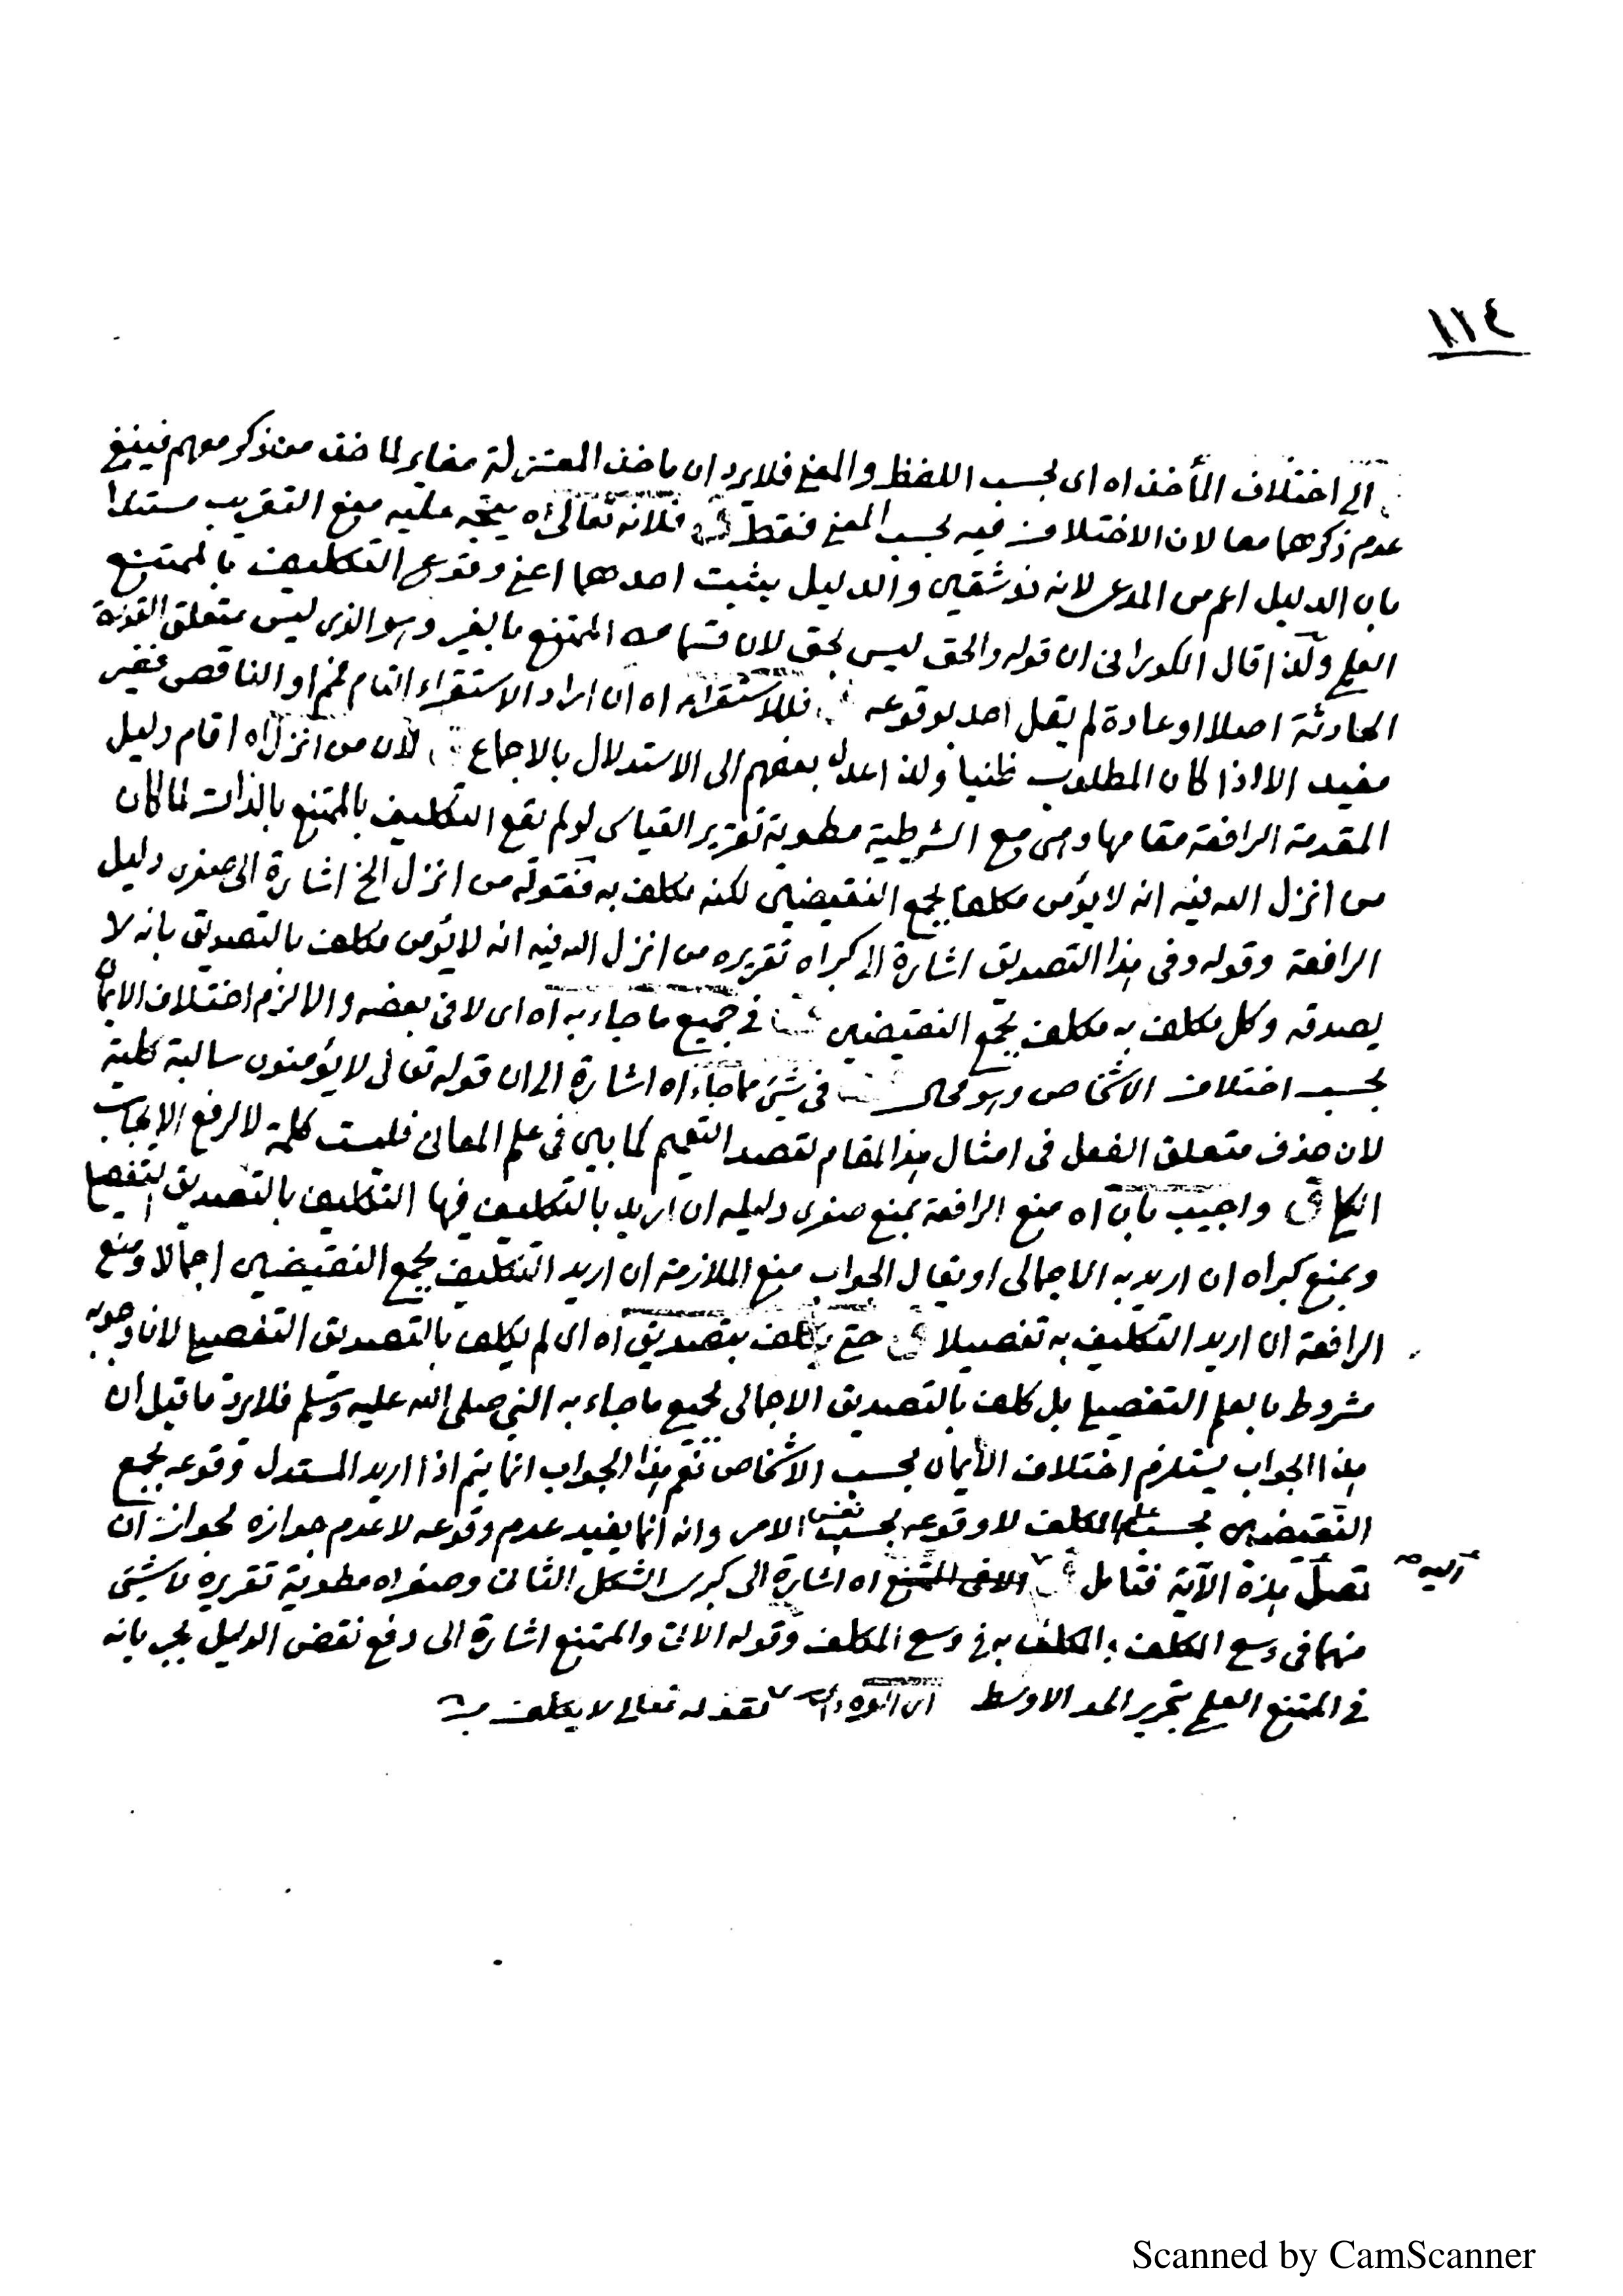 ١١٤
الى اختلاف المأخذ اه اى بحسب اللفظ والمعنى فلا يرد ان ماخذ المعتزلة مغاير لماخذ من ذكر معهم فينبغى
عدم ذكرهما معا لان الاختلاف فيه بحسب المعنى فقط ق فلانه تعالى اه يتجه عليه منع التقريب مستندا
بان الدليل اعم من المدعى لانه ذو شقين والدليل يثبت احدهما اعنى وقوع التكليف بالممتنع
العلمى ولذا قال الكورانى ان قوله والحق ليس بحق لان قسما من الممتنع بالغير وهو الذى ليس متعلق القدرة
الحادثة اصلا او عادة لم يقل احد بوقوعه فللاستقراء اه ان اراد الاستقراء التام فمم او الناقص فغير
مفيد الا اذا كان المطلوب ظنيا ولذا عدل بعضهم الى الاستدلال بالاجماع لان من انزل اه اقام دليل
المقدمة الرافعة مقامها وهى مع الشرطية مطوية تقرير القياس لو لم يقع التكليف بالممتنع بالذات لما كان
من انزل الله فيه انه لا يؤمن مكلفا بجمع النقيضين لكنه مكلف به فقوله من انزل الخ اشارة الى صغرى دليل
الرافعة وقوله وفى هذا التصديق اشارة الى كبراه تقريره من انزل الله فيه انه لا يؤمن مكلف بالتصديق بانه لا
يصدقه وكل مكلف به مكلف بجمع النقيضين فى جميع ما جاء به اه اى لا فى بعضه والا لزم اختلاف الايمان
بحسب اختلاف الاشخاص وهو محال فى شئ مما جاء اه اشارة الى ان قوله تعالى لا يؤمنون سالبة كلية
لان حذف متعلق الفعل فى امثال هذا المقام لقصد التعميم كما بين فى علم المعانى فليست كلمة لا لرفع الايجاب
الكلى ق واجيب بان اه منع الرافعة بمنع صغرى دليله ان اريد بالتكليف فيها التكليف بالتصديق التفصيلى
وبمنع كبراه ان اريد به الاجمالى او يقال الجواب منع الملازمة ان اريد التكليف بجمع النقيضين اجمالا ومنع
الرافعة ان اريد التكليف به تفصيلا ق حتى يكلف بتصديق اه اى لم يكلف بالتصديق التفصيلى لانا وجوبه
مشروط بالعلم التفصيلى بل كلف بالتصديق الاجمالى لجميع ما جاء به النبى صلى الله عليه وسلم فلا يرد ما قيل ان
هذا الجواب يستلزم اختلاف الايمان بحسب الاشخاص نعم هذا الجواب انما يتم اذا اريد المستدل وقوعه بجمع
النقيضين بحسب علم المكلف لا وقوعه بحسب نفس الامر وانه انما يفيد عدم وقوعه لا عدم جوازه لجواز ان
تصل هذه الآية فتأمل ق اه اشارة الى كبرى الشكل الثانى وصغراه مطوية تقريره لا شئ
اليه صح
منهما فى وسع المكلف والمكلف به فى وسع المكلف وقوله والممتنع اشارة الى دفع نقض الدليل بجريانه
فى الممتنع العلمى بتحرير الحد الاوسط لقوله تعالى لا يكلف
Scanned by CamScanner